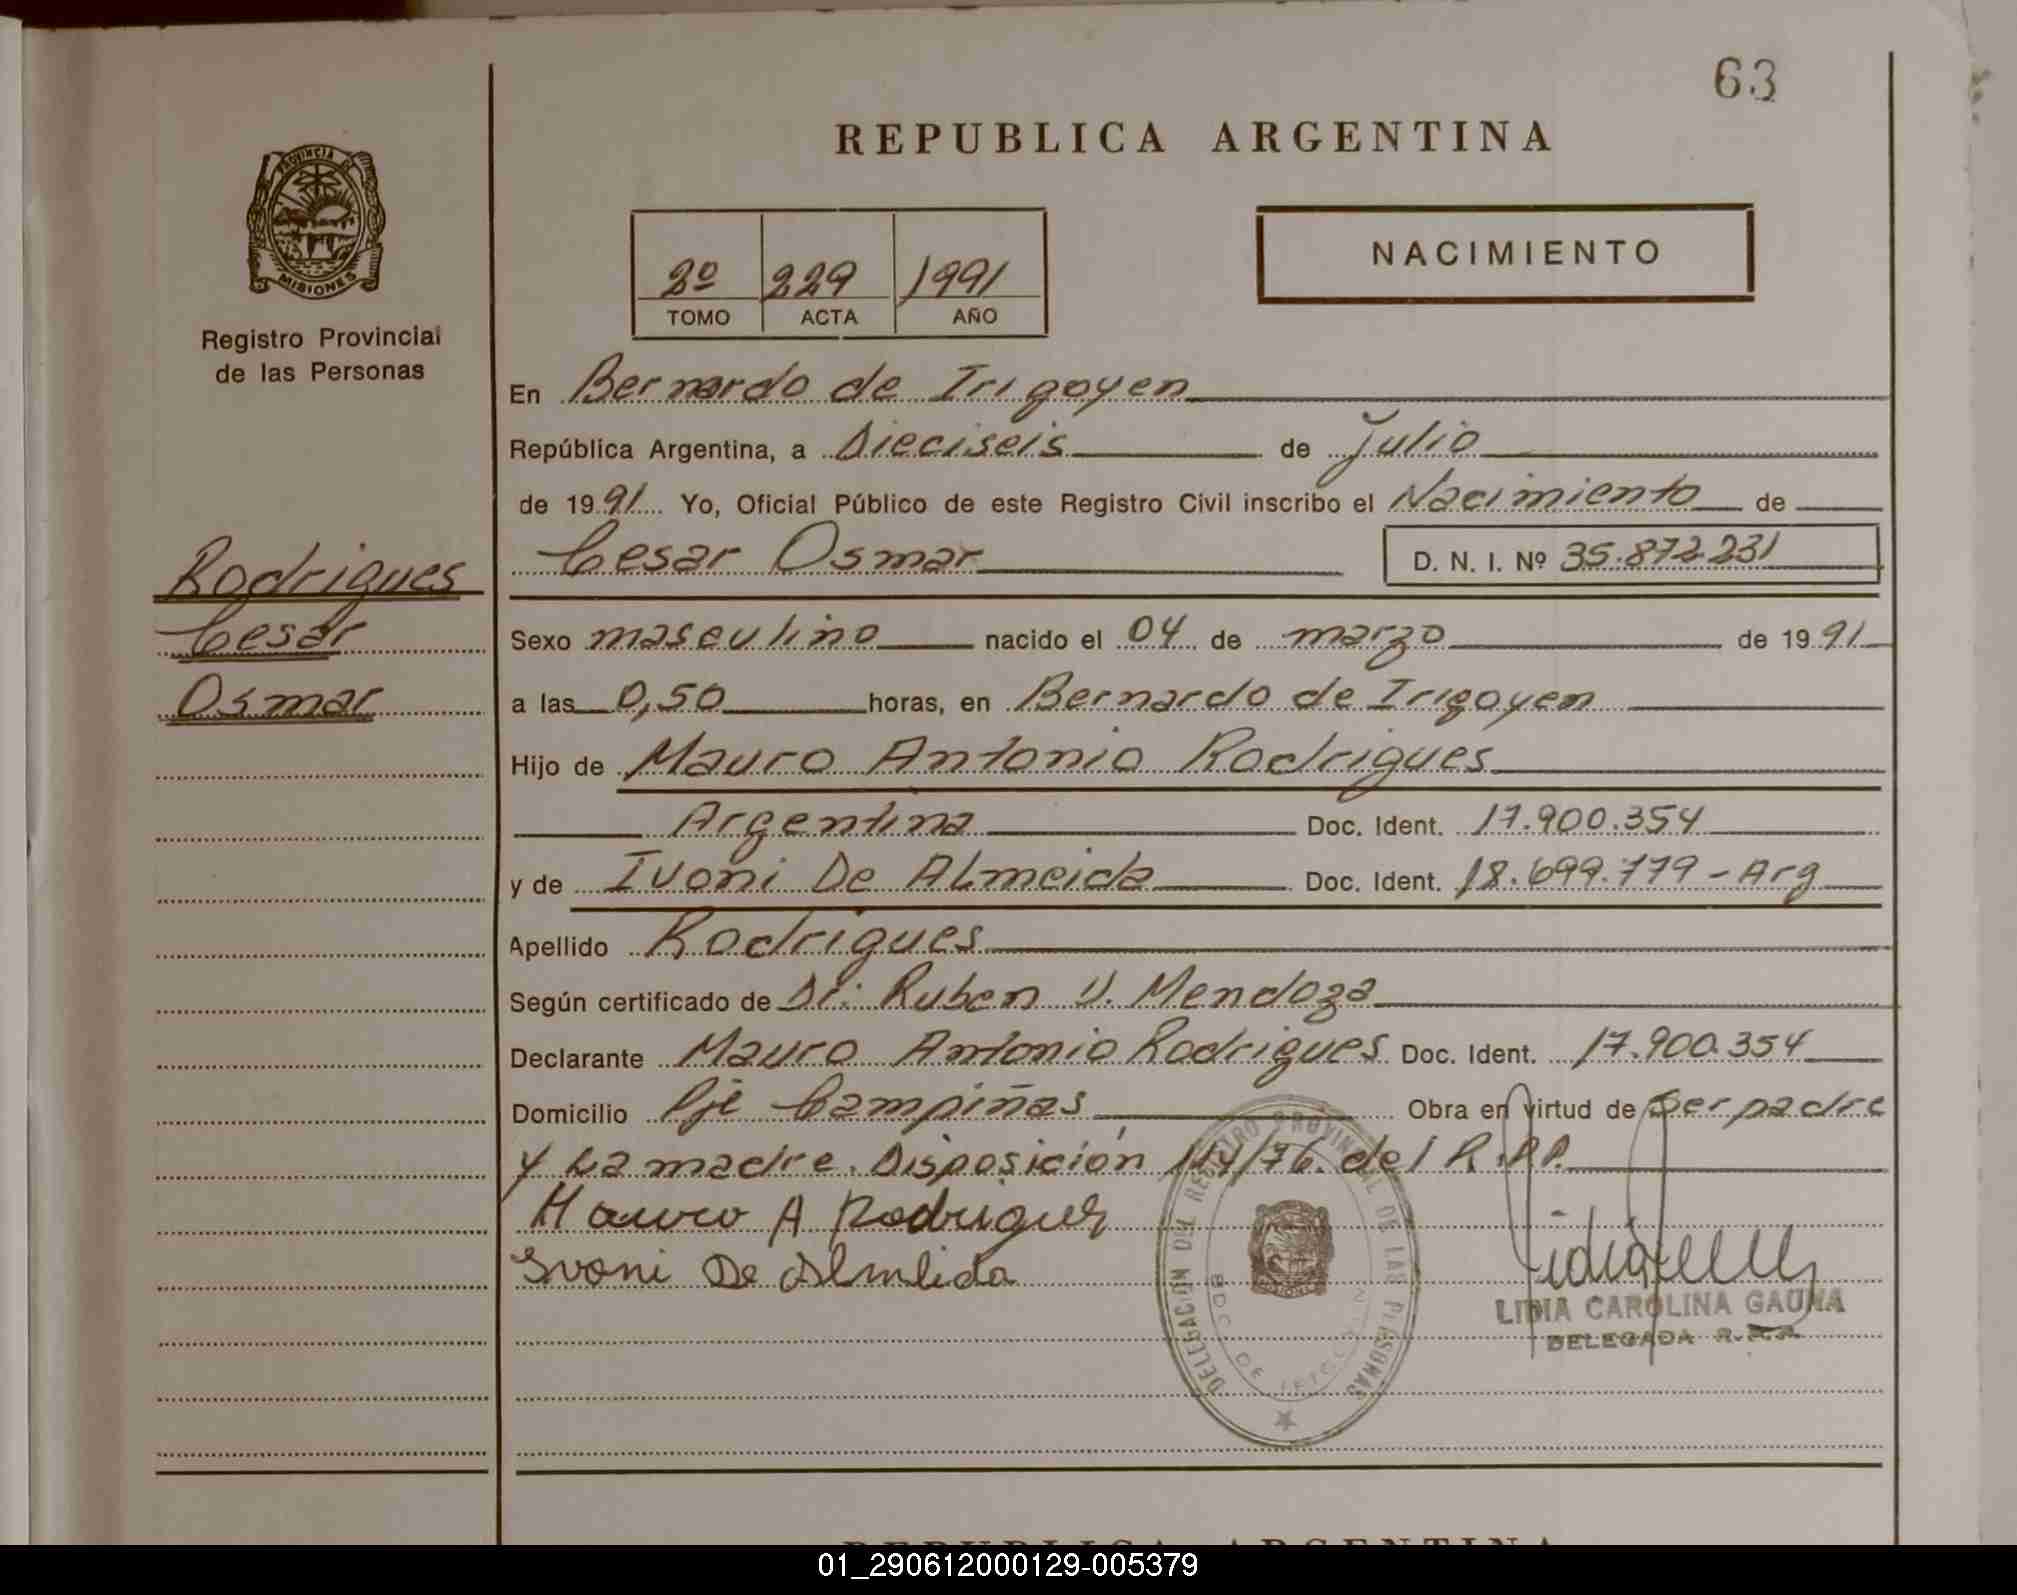 63
REPUBLICA ARGENTINA
PROVINCIA DE
MISIONES
Registro Provincial
de las Personas
2º 229 1991
TOMO ACTA AÑO
NACIMIENTO
En Bernardo de Irigoyen
República Argentina, a Dieciseis de Julio
de 1991 Yo, Oficial Público de este Registro Civil inscribo el Nacimiento de
Cesar Osmar D. N. I. Nº 35.872.231
Rodrigues
Cesar
Osmar
Sexo masculino nacido el 04 de marzo de 1991
a las 0,50 horas, en Bernardo de Irigoyen
Hijo de Mauro Antonio Rodrigues
Argentina Doc. Ident. 17.900.354
y de Ivoni De Almeida Doc. Ident. 18.699.779 - Arg
Apellido Rodrigues
Según certificado de Dr. Ruben V. Mendoza
Declarante Mauro Antonio Rodrigues Doc. Ident. 17.900.354
Domicilio Pje Campiñas Obra en virtud de Ser padre
y La madre. Disposición 114/76 del R.P.P.
Mauro A Rodrigues
Ivoni De Almeida
DELEGACION DEL REGISTRO PROVINCIAL DE LAS PERSONAS
BDO. DE IRIGOYEN
LIDIA CAROLINA GAUNA
DELEGADA R.P.P.
REPUBLICA ARGENTINA
01_290612000129-005379